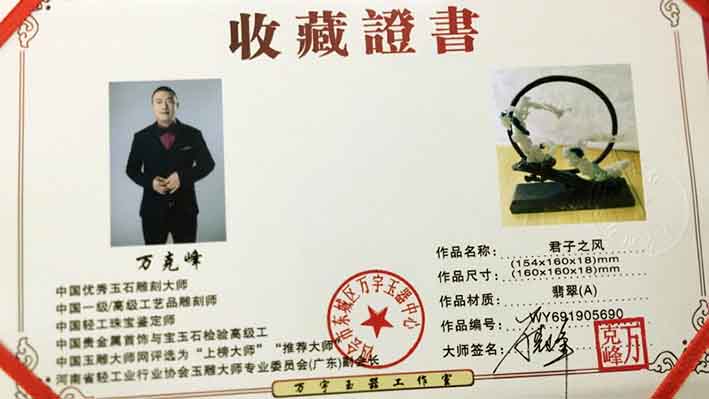 收藏證書
万克峰
中国优秀玉石雕刻大师
中国一级/高级工艺品雕刻师
中国轻工珠宝鉴定师
中国贵金属首饰与宝玉石检验高级工
中国玉雕大师网评选为“上榜大师”“推荐大师”
河南省轻工业行业协会玉雕大师专业委员会(广东)副会长
作品名称： 君子之风
(154x160x18)mm
作品尺寸： (160x160x18)mm
作品材质： 翡翠(A)
作品编号： WY691905690
大师签名：
万克峰
市东城区万宇玉器中心
万宇玉器工作室